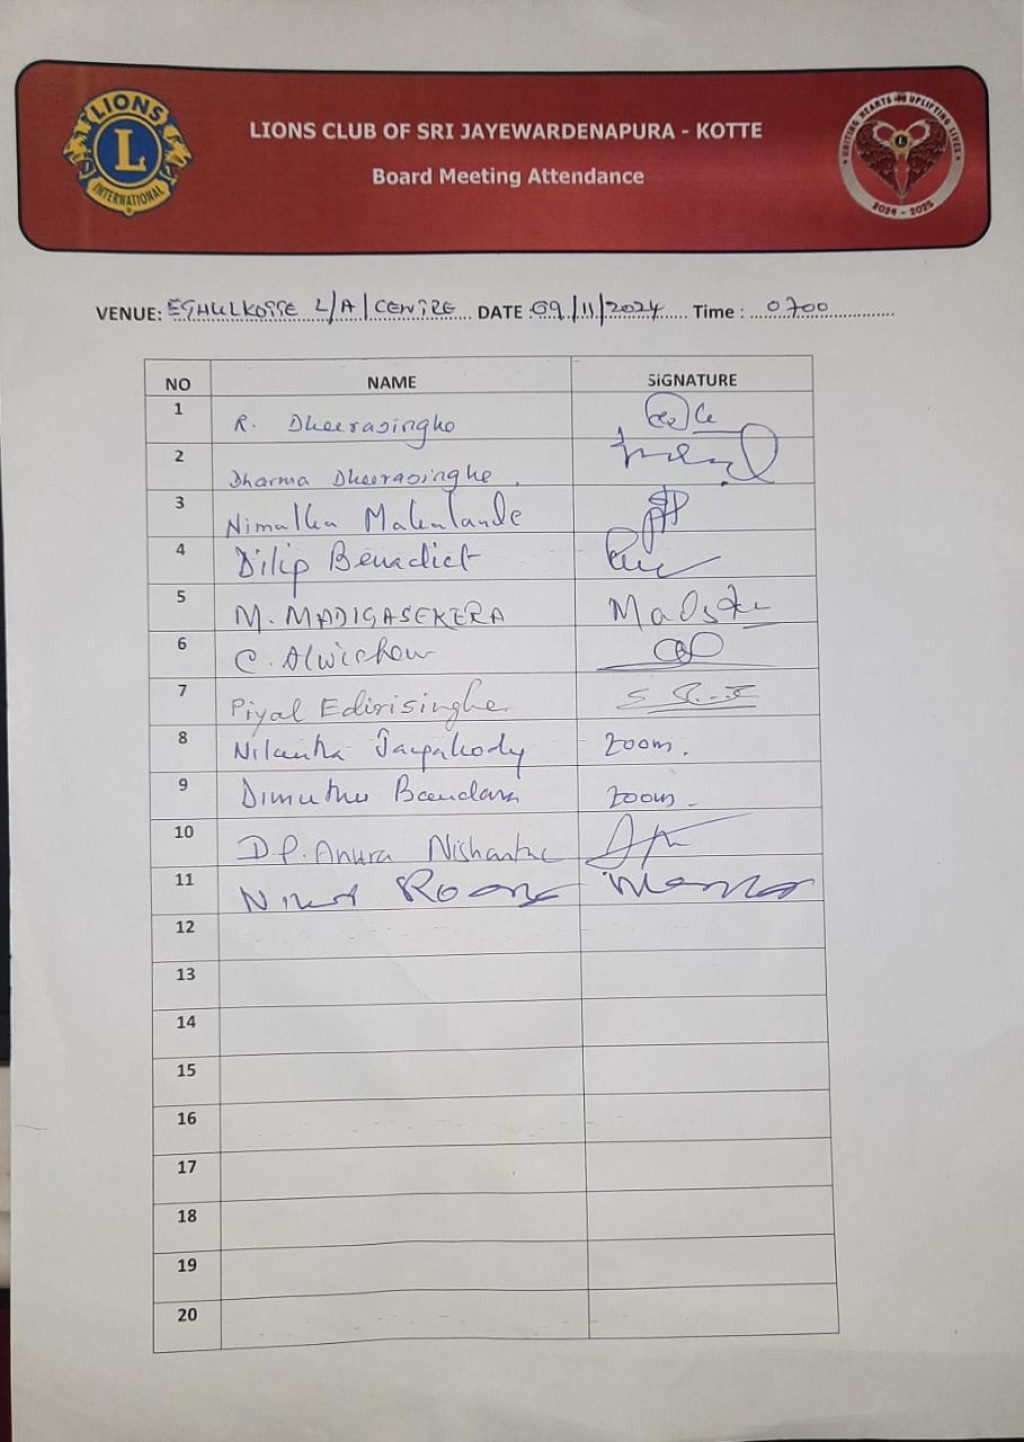 LIONS
L
INTERNATIONAL
UNITING HEARTS UPLIFTING LIVES
2024 - 2025
LIONS CLUB OF SRI JAYEWARDENAPURA - KOTTE
Board Meeting Attendance
VENUE: ETHULKOTTE L/A/CENTRE DATE: 09/11/2024 Time: 0700
NO NAME SIGNATURE
1 R. Dheerasinghe
2 Dharma Dheerasinghe.
3 Nimalka
4 Dilip Benadict
5 M. MADIGASEKERA
6 C.
7 Piyal Edirisinghe.
8 Nilantha Jayakody zoom.
9 Dimuthu Bandara zoom
10 D P. Anura Nishantha
11
12
13
14
15
16
17
18
19
20